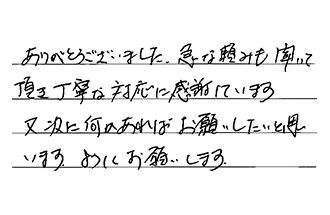 ありがとうございました。急な頼みも聞いて
頂き丁寧な対応に感謝しています
又次に何かあればお願いしたいと思
います。よろしくお願いします。